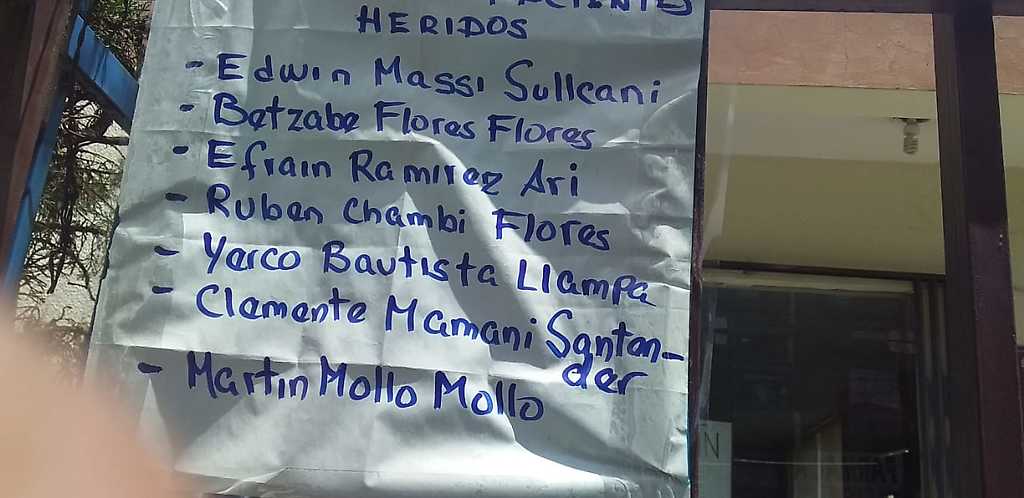 PACIENTES
HERIDOS
- Edwin Massi Sullcani
- Betzabe Flores Flores
- Efrain Ramirez Ari
- Ruben Chambi Flores
- Yerco Bautista Llampa
- Clemente Mamani Santan-
der
- Martin Mollo Mollo
N